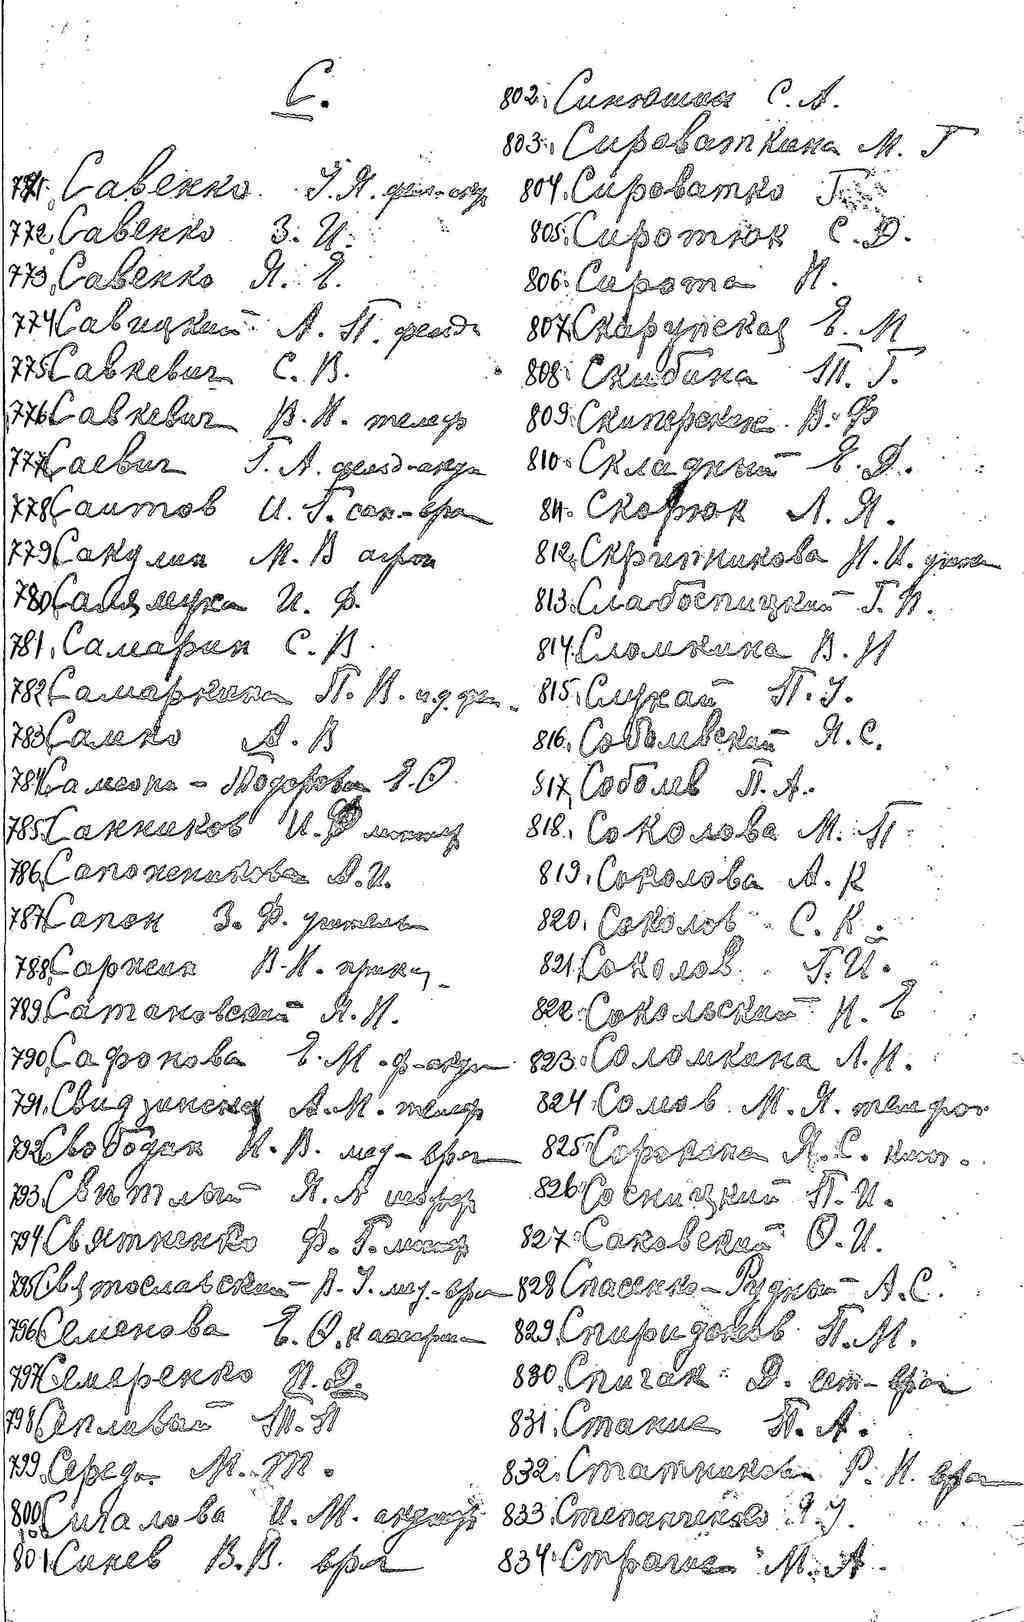 С.
771. Савенко І. Я. фель-акуш
772. Савенко З. И.
773. Савенко Я. Е.
774 Савицкий А. П. фельд
775 Савкевич С. В.
776 Савкевич В. Н. телеф
777 Саевич Г. А. фельд-акуш
778 Саитов И. Г. сан-врач
779 Сакулин М. В агрон
780 И. Ф.
781. Самарин С. В.
782 Самаркина П. В. и.д.
783 Самко А. В
784 Самсона-Тодорова Е. О.
785 Санников И. Ф
786 Сапожникова А. И.
787 Сапон З. Ф. учитель
788 В. Н.
789 Сатановский Я. Н.
790 Сафонова Е. М. ф-акуш
791. Свидзинская А. М. телеф
792 Свободин Н. В. мед-врач
793. Свитлый Я. А шофер
794 Святненко Ф. Г.
795 Святославский В. І. мед-врач
796 Семенова Е. О.
797 Семеренко П. Д.
798 Сипливый Т. П
799. Середа М. Т.
800 Сигалова И. М. акушер
801 Синев В. В. врач
802. Синюшин С. А.
803. Сироваткина М. Г
804. Сироватко Г.
805. Сиротюк С. Д.
806. Сирота Н.
807. Скарупская Е. М
808. Скибина Т. Г.
809. В. Ф
810. Складный Е. Д.
811. Скорюк Л. Я.
812. Скрипникова Н. И.
813. Слабоспицкий Г. Н.
814. Сломкина В. Н
815. Слукай П. І.
816. Соболевский Я. С.
817. Соболев П. А.
818. Соколова М. П
819. Соколова А. К
820. Соколов С. К.
821. Соколов Г. И.
822. Сокольский Н. Е
823. Соломкина Л. Н.
824 Сомов М. Я. телефон
825 Сорокина Я. С.
826 Сосницкий П. И.
827 Саковский О. И.
828 Спасенко-Рудный А. С.
829. Спиридонов П. М.
830. Спичак Д. вет-врач
831. П. А.
832. Статников Р. Н. врач
833. Степанченко Я. І.
834. М. А.